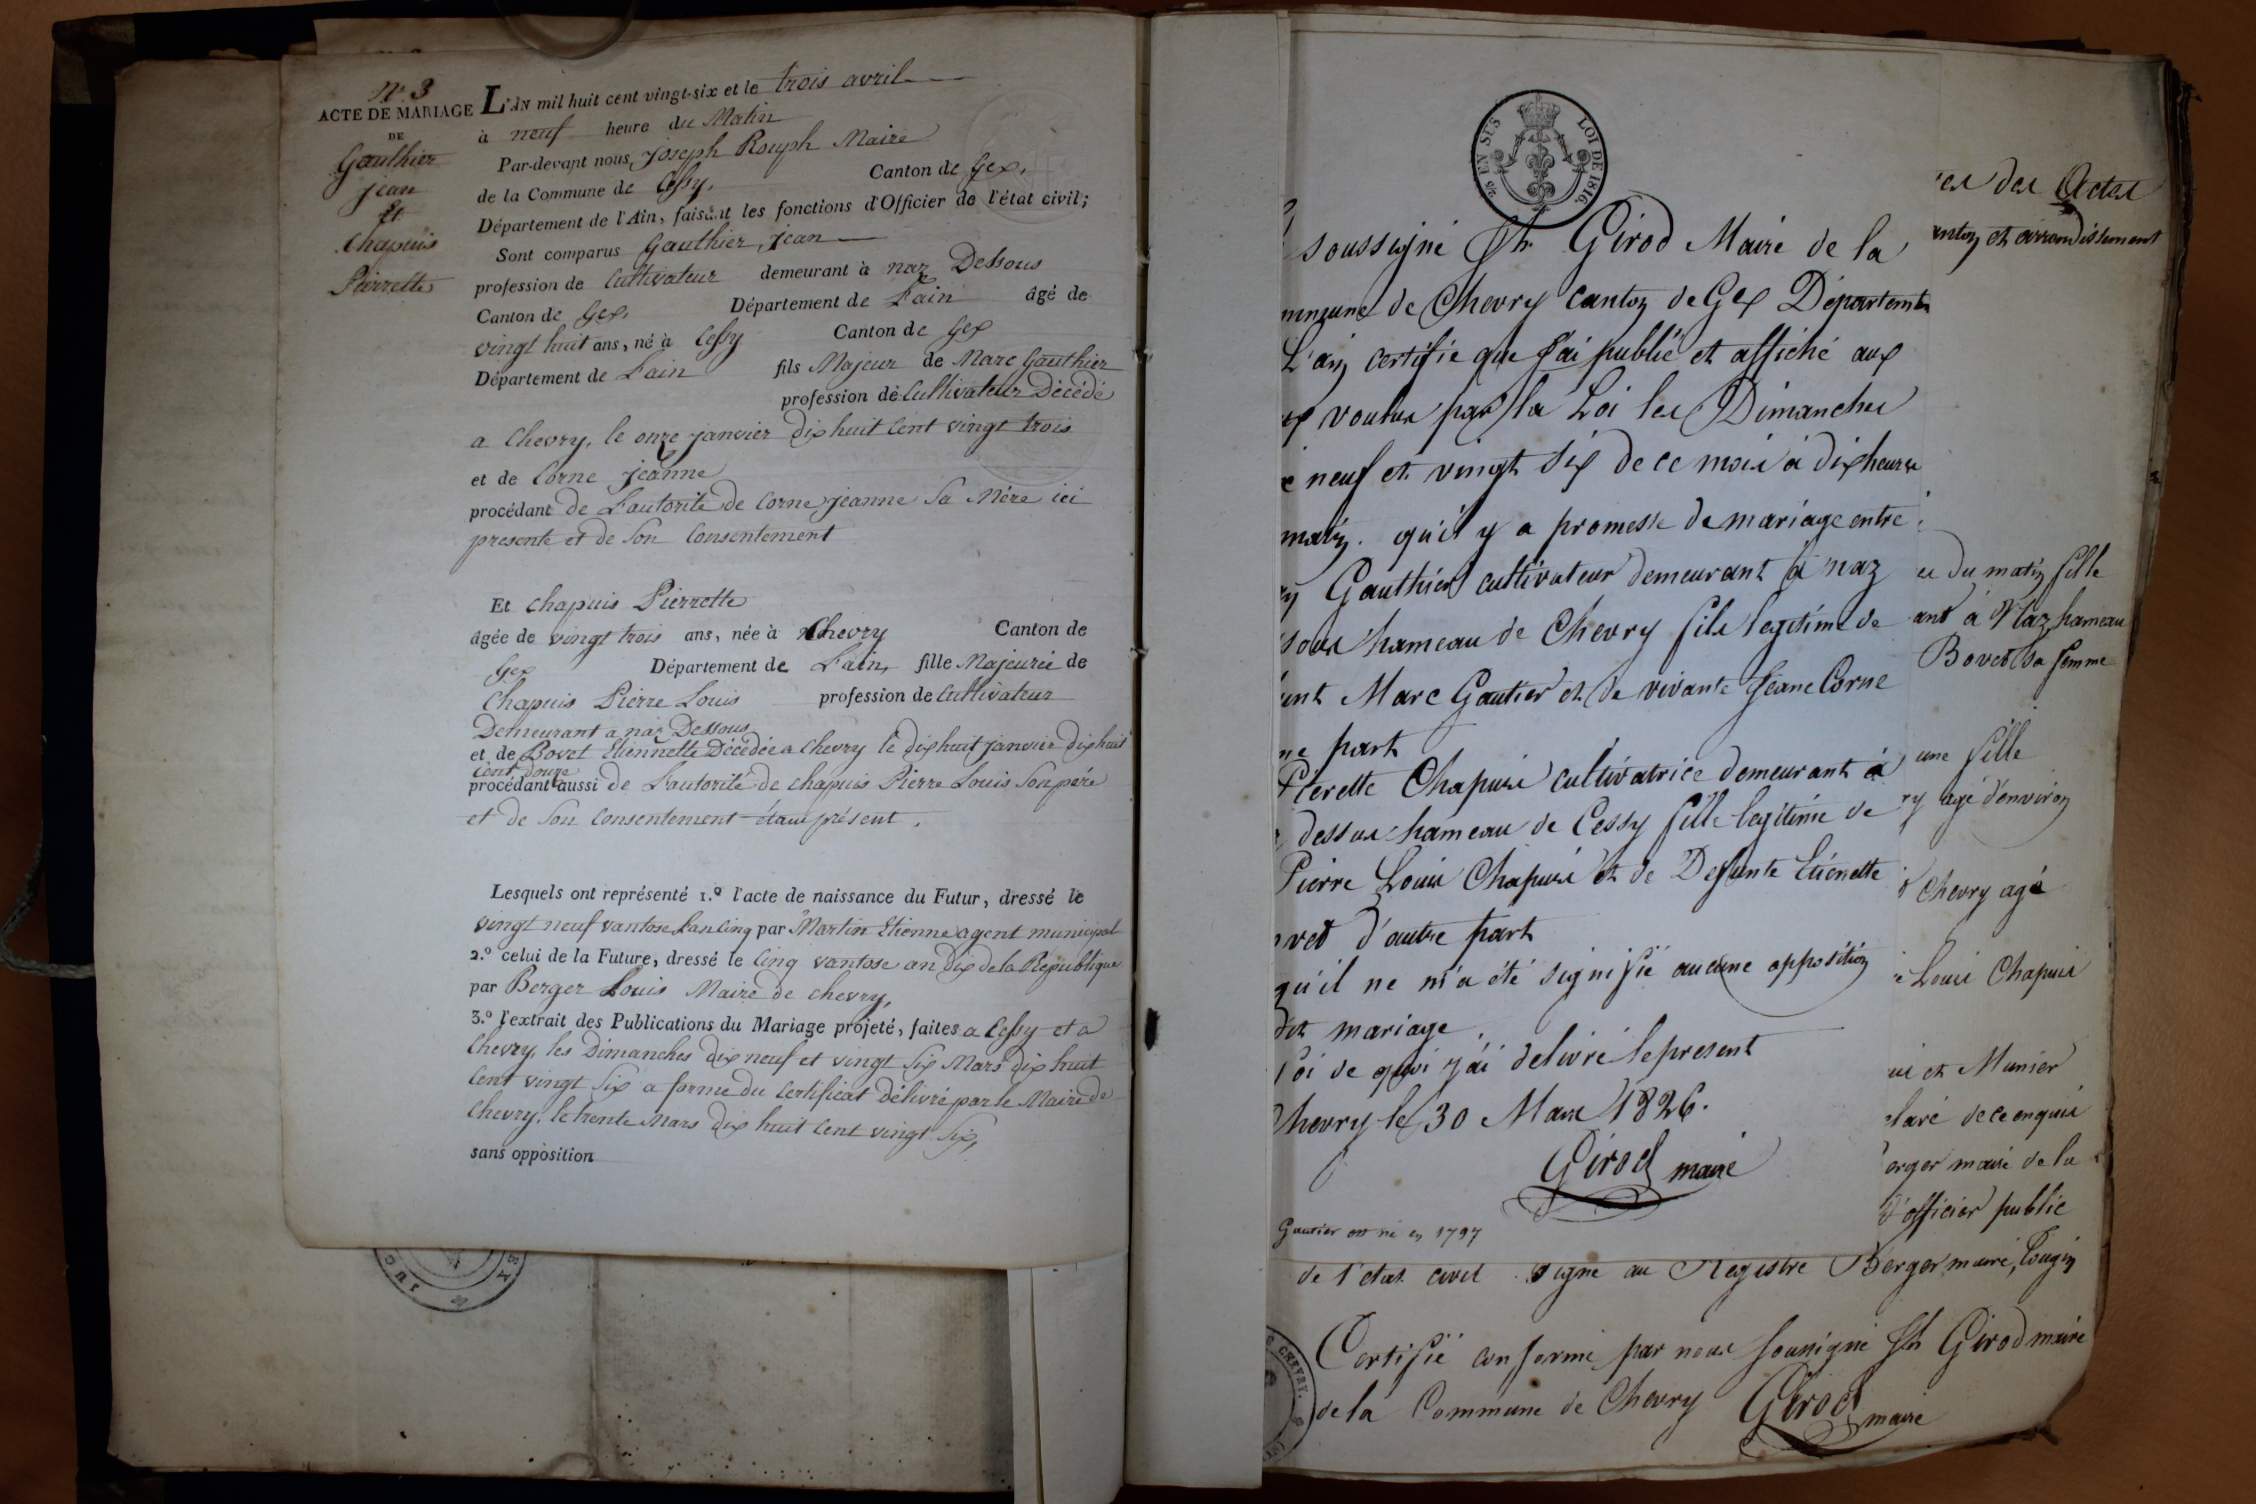 N.º 3
ACTE DE MARIAGE
DE
Gauthier
Jean
Et
Chapuis
Pierrette
L'AN mil huit cent vingt-six et le trois avril
à neuf heure du Matin
Par-devant nous, Joseph Rouph Maire
de la Commune de Cessy, Canton de Gex,
Département de l'Ain, faisant les fonctions d'Officier de l'état civil;
Sont comparus Gauthier, Jean
profession de Cultivateur demeurant à naz Dessous
Canton de Gex, Département de L'ain âgé de
vingt huit ans, né à Cessy Canton de Gex
Département de L'ain fils Majeur de Marc Gauthier
profession de Cultivateur Décédé
a Chevry, le onze janvier dix huit Cent vingt trois
et de Corne Jeanne
procédant de L'autorité de Corne jeanne Sa Mère ici
presente et de Son Consentement
Et Chapuis Pierrette
âgée de vingt trois ans, née à Chevry Canton de
Gex Département de L'ain, fille Majeure de
Chapuis Pierre Louis profession de Cultivateur
Demeurant a naz Dessous
et de Bovet Etiennette Décédée a Chevry le dix huit janvier dix huit
Cent douze
procédant aussi de L'autorité de Chapuis Pierre Louis Son père
et de Son Consentement étant présent.
Lesquels ont représenté 1.º l'acte de naissance du Futur, dressé le
vingt neuf vantose Lan Cinq par Martin Etienne agent municipal
2.º celui de la Future, dressé le Cinq vantose an Dix de la Republique
par Berger Louis Maire de Chevry,
3.º l'extrait des Publications du Mariage projeté, faites a Cessy et a
Chevry, les Dimanches dix neuf et vingt Six Mars dix huit
Cent vingt Six a forme du Certificat Délivré par le Maire de
Chevry, le trente Mars dix huit Cent vingt Six,
sans opposition
EN SUS
LOI DE 1816.
soussigné Jh Girod Maire de la
mmune de Chevry canton de Gex Departemt
L'ain certifie que J'ai publié et affiché aux
voulus par la Loi les Dimanches
neuf et vingt six de ce mois à dix heures
matin. qu'il y a promesse de mariage entre
Gauthier cultivateur demeurant à naz
sous hameau de Chevry fils legitime de
unt Marc Gautier et de vivante Jeane Corne
ne part
Pierette Chapuis cultivatrice demeurant à
dessous hameau de Cessy fille legitime de
Pierre Louis Chapuis et de Defunte Etienette
vet d'autre part
qu'il ne m'a été signifié aucune opposition
dit mariage.
foi de quoi j'ai delivré le present
Chevry le 30 Mars 1826.
Girod maire
Gautier est né en 1797
es des Actes
anton et arrondissement
es du matin fille
ant à Naz hameau
Bovet sa femme
une fille
ry agé d'environ
Chevry agé
Louis Chapuis
et Munier
claré de ce enquis
erger maire de la
d'officier public
de l'etat civil signé au Registre Berger maire, Tougin
Certifié conforme par nous soussigné Jh Girod maire
de la Commune de Chevry Girod maire
CHEVRY.